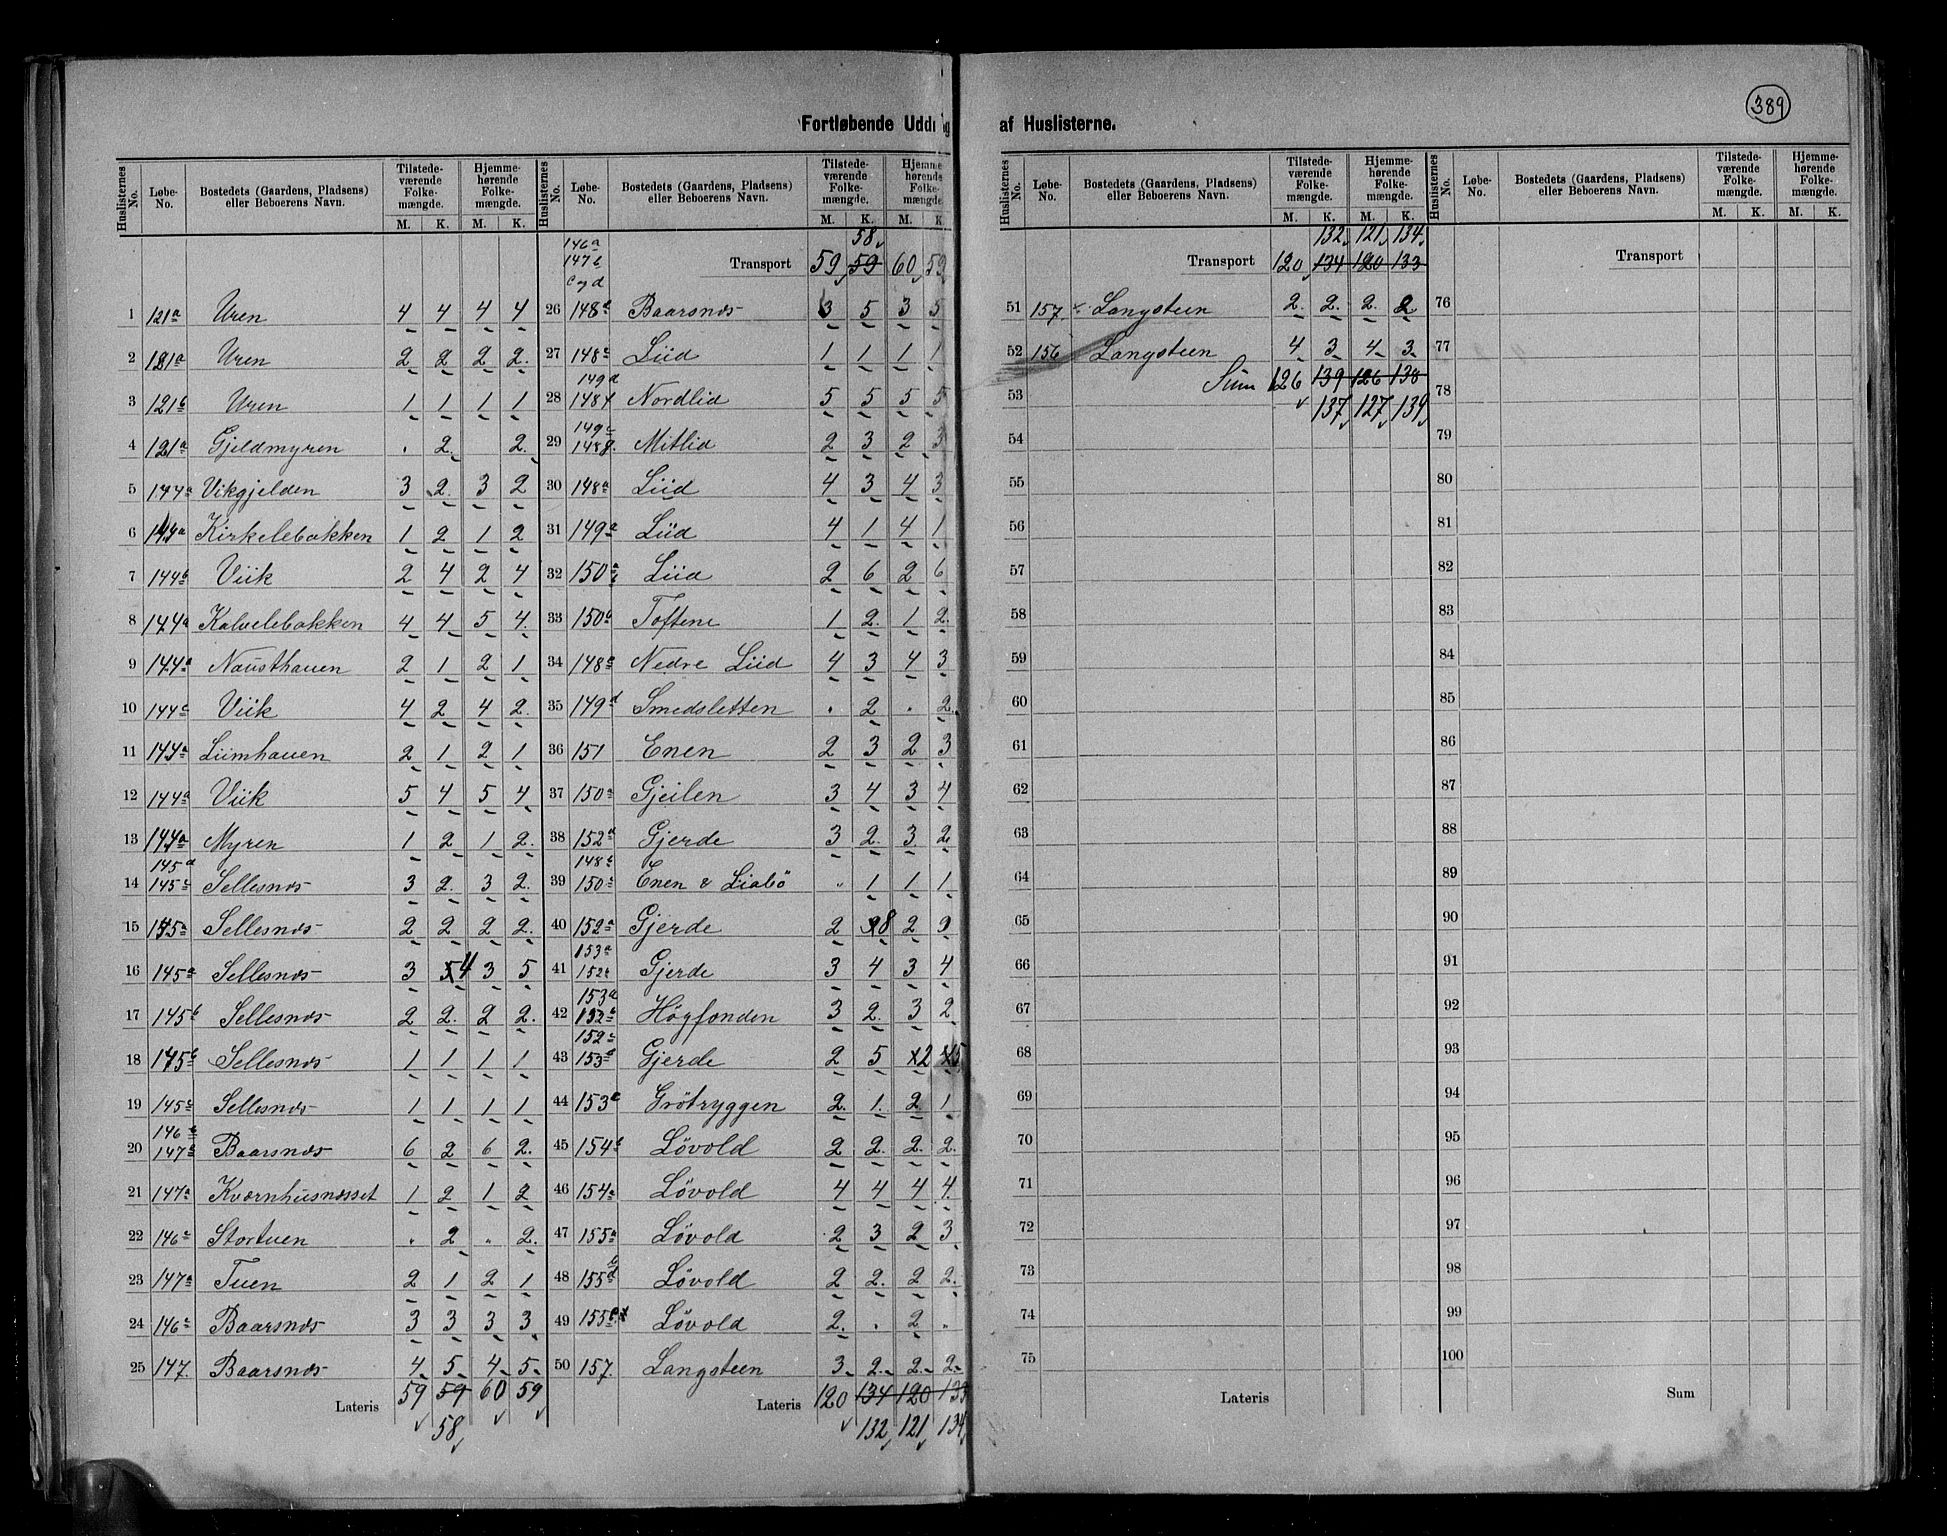 389
Fortløbende Uddrag af Huslisterne.
Huslisternes No. | Løbe-No. | Bostedets (Gaardens, Pladsens) eller Beboerens Navn. | Tilstedeværende Folkemængde. M. K. | Hjemmehørende Folkemængde. M. K.
1 121a Uren 4 4 4 4
2 121a Uren 2 2 2 2.
3 121b Uren 1 1 1 1
4 121a Gjeldmyren . 2. 2.
5 144a Vikgjelden 3 2. 3 2
6 144a Kirkelebakken 1 2 1 2
7 144b Viik 2 4 2 4
8 144a Kalvelebakken 4 4 5 4.
9 144a Nausthauen 2 1 2 1
10 144c Viik 4 2 4 2.
11 144a Liimhauen 2 1 2 1
12 144a Viik 5 4 5 4
13 144a Myren 1 2 1 2.
145d
14 145c Sellesnæs 3 2. 3 2.
15 145a Sellesnæs 2 2 2 2.
16 145a Sellesnæs 3 4 3 5
17 145b Sellesnæs 2 2. 2 2.
18 145b Sellesnæs 1 1 1 1
19 145c Sellesnæs 1 1 1 1
146b
20 147b Baarsnæs 6 2 6 2.
21 147a Kværnhusnæsset 1 2 1 2
22 146c Stortuen . 2 . 2.
23 147a Tuen 2 1 2 1
24 146c Baarsnæs 3 3 3 3
25 147. Baarsnæs 4 5 4 5
Lateris 59 59 60 59
58
146a
147b
c og d
58
Transport 59 59 60 59
26 148d Baarsnæs 3 5 3 5
27 148c Liid 1 1 1 1
149d
28 148f Nordlid 5 5 5 5
149c
29 148g. Mitlid 2 3 2 3
30 148a Liid 4 3 4 3
31 149a Liid 4 1 4 1
32 150a Liid 2 6 2 6
33 150b Toftene 1 2. 1 2.
34 148c Nedre Liid 4 3 4 3
35 149d Smedsletten . 2 . 2.
36 151 Enen 2 3 2 3
37 150a Gjeilen 3 4 3 4
38 152d Gjerde 3 2. 3 2
148b
39 150c Enen & Liabö . 1 1 1
40 152a Gjerde 2 8 2 9
153a
41 152b Gjerde 3 4 3 4
153a
42 152b Högfonden 3 2. 3 2
152c
43 153b Gjerde 2 5 2 5
44 153a Grötryggen 2. 1. 2 1
45 154b Lövold 2 2. 2. 2.
46 154a Lövold 4 4 4 4
47 155a Lövold 2 3 2 3
48 155d Lövold 2 2. 2 2.
49 155c Lövold 2. . 2 .
50 157. Langsteen 3 2. 2. 2.
Lateris 120 134 120 133
132 121 134
Huslisternes No. | Løbe-No. | Bostedets (Gaardens, Pladsens) eller Beboerens Navn. | Tilstedeværende Folkemængde. M. K. | Hjemmehørende Folkemængde. M. K.
132 121 134
Transport 120 134 120 133
51 157. Langsteen 2. 2. 2. 2
52 156 Langsteen 4 3 4 3
53 Sum 126 139 126 138
137 127 139
54
55
56
57
58
59
60
61
62
63
64
65
66
67
68
69
70
71
72
73
74
75
Lateris
Transport
76
77
78
79
80
81
82
83
84
85
86
87
88
89
90
91
92
93
94
95
96
97
98
99
100
Sum